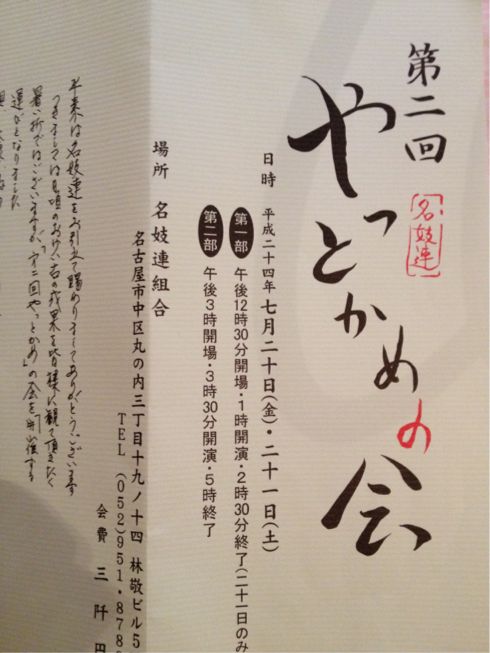 第二回
名妓連
やっとかめの会
日時 平成二十四年七月二十日(金)・二十一日(土)
第一部 午後12時30分開場・1時開演・2時30分終了(二十一日のみ
第二部 午後3時開場・3時30分開演・5時終了
場所 名妓連組合
名古屋市中区丸の内三丁目十九ノ十四 林敬ビル5
TEL (052)951・878
会費 三阡円
平素は名妓連をお引立て賜わりましてありがとうございます
つきましては日頃のおけい古の成果を皆様に観て頂きたく
暑い折ではございますが、「第二回やっとかめ」の会を開催する
運びとなりました